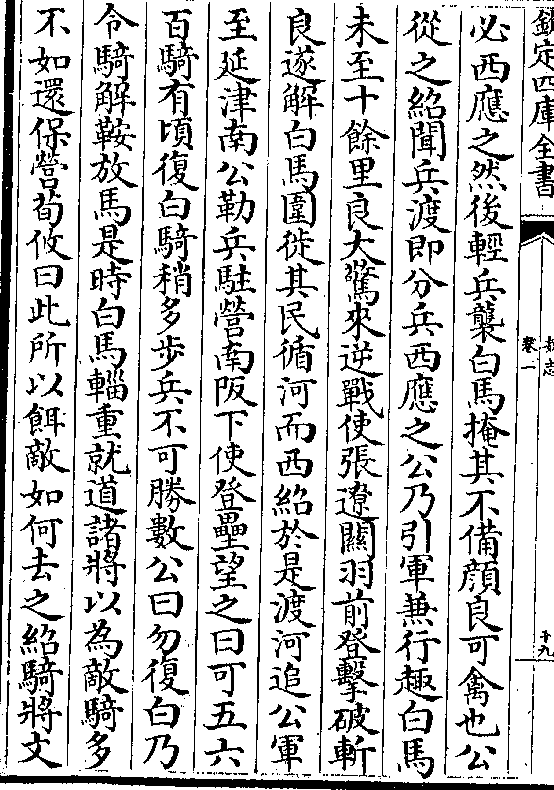 欽定四庫全書
魏志
卷一
十九
必西應之然後輕兵襲白馬掩其不備顔良可禽也公
從之紹聞兵渡即分兵西應之公乃引軍兼行趣白馬
未至十餘里良大驚來逆戰使張遼關羽前登擊破斬
良遂解白馬圍徙其民循河而西紹於是渡河追公軍
至延津南公勒兵駐營南阪下使登壘望之曰可五六
百騎有頃復白騎稍多步兵不可勝數公曰勿復白乃
令騎解鞍放馬是時白馬輜重就道諸將以為敵騎多
不如還保營荀攸曰此所以餌敵如何去之紹騎將文